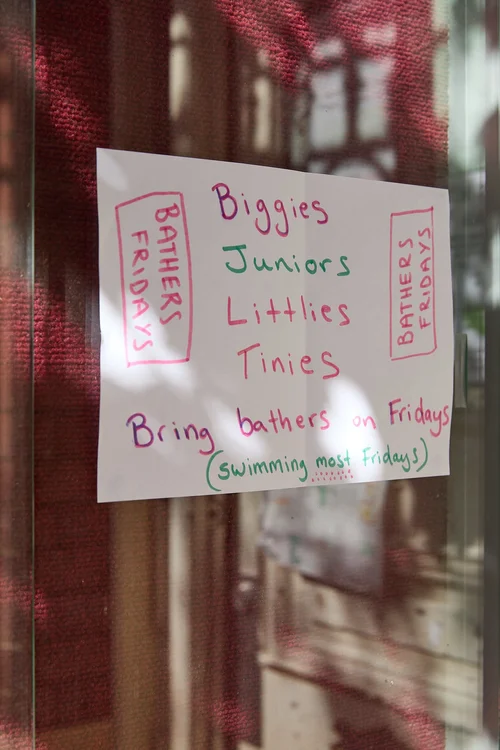 BATHERS
FRIDAYS
Biggies
Juniors
Littlies
Tinies
BATHERS
FRIDAYS
Bring bathers on Fridays
(swimming most Fridays)